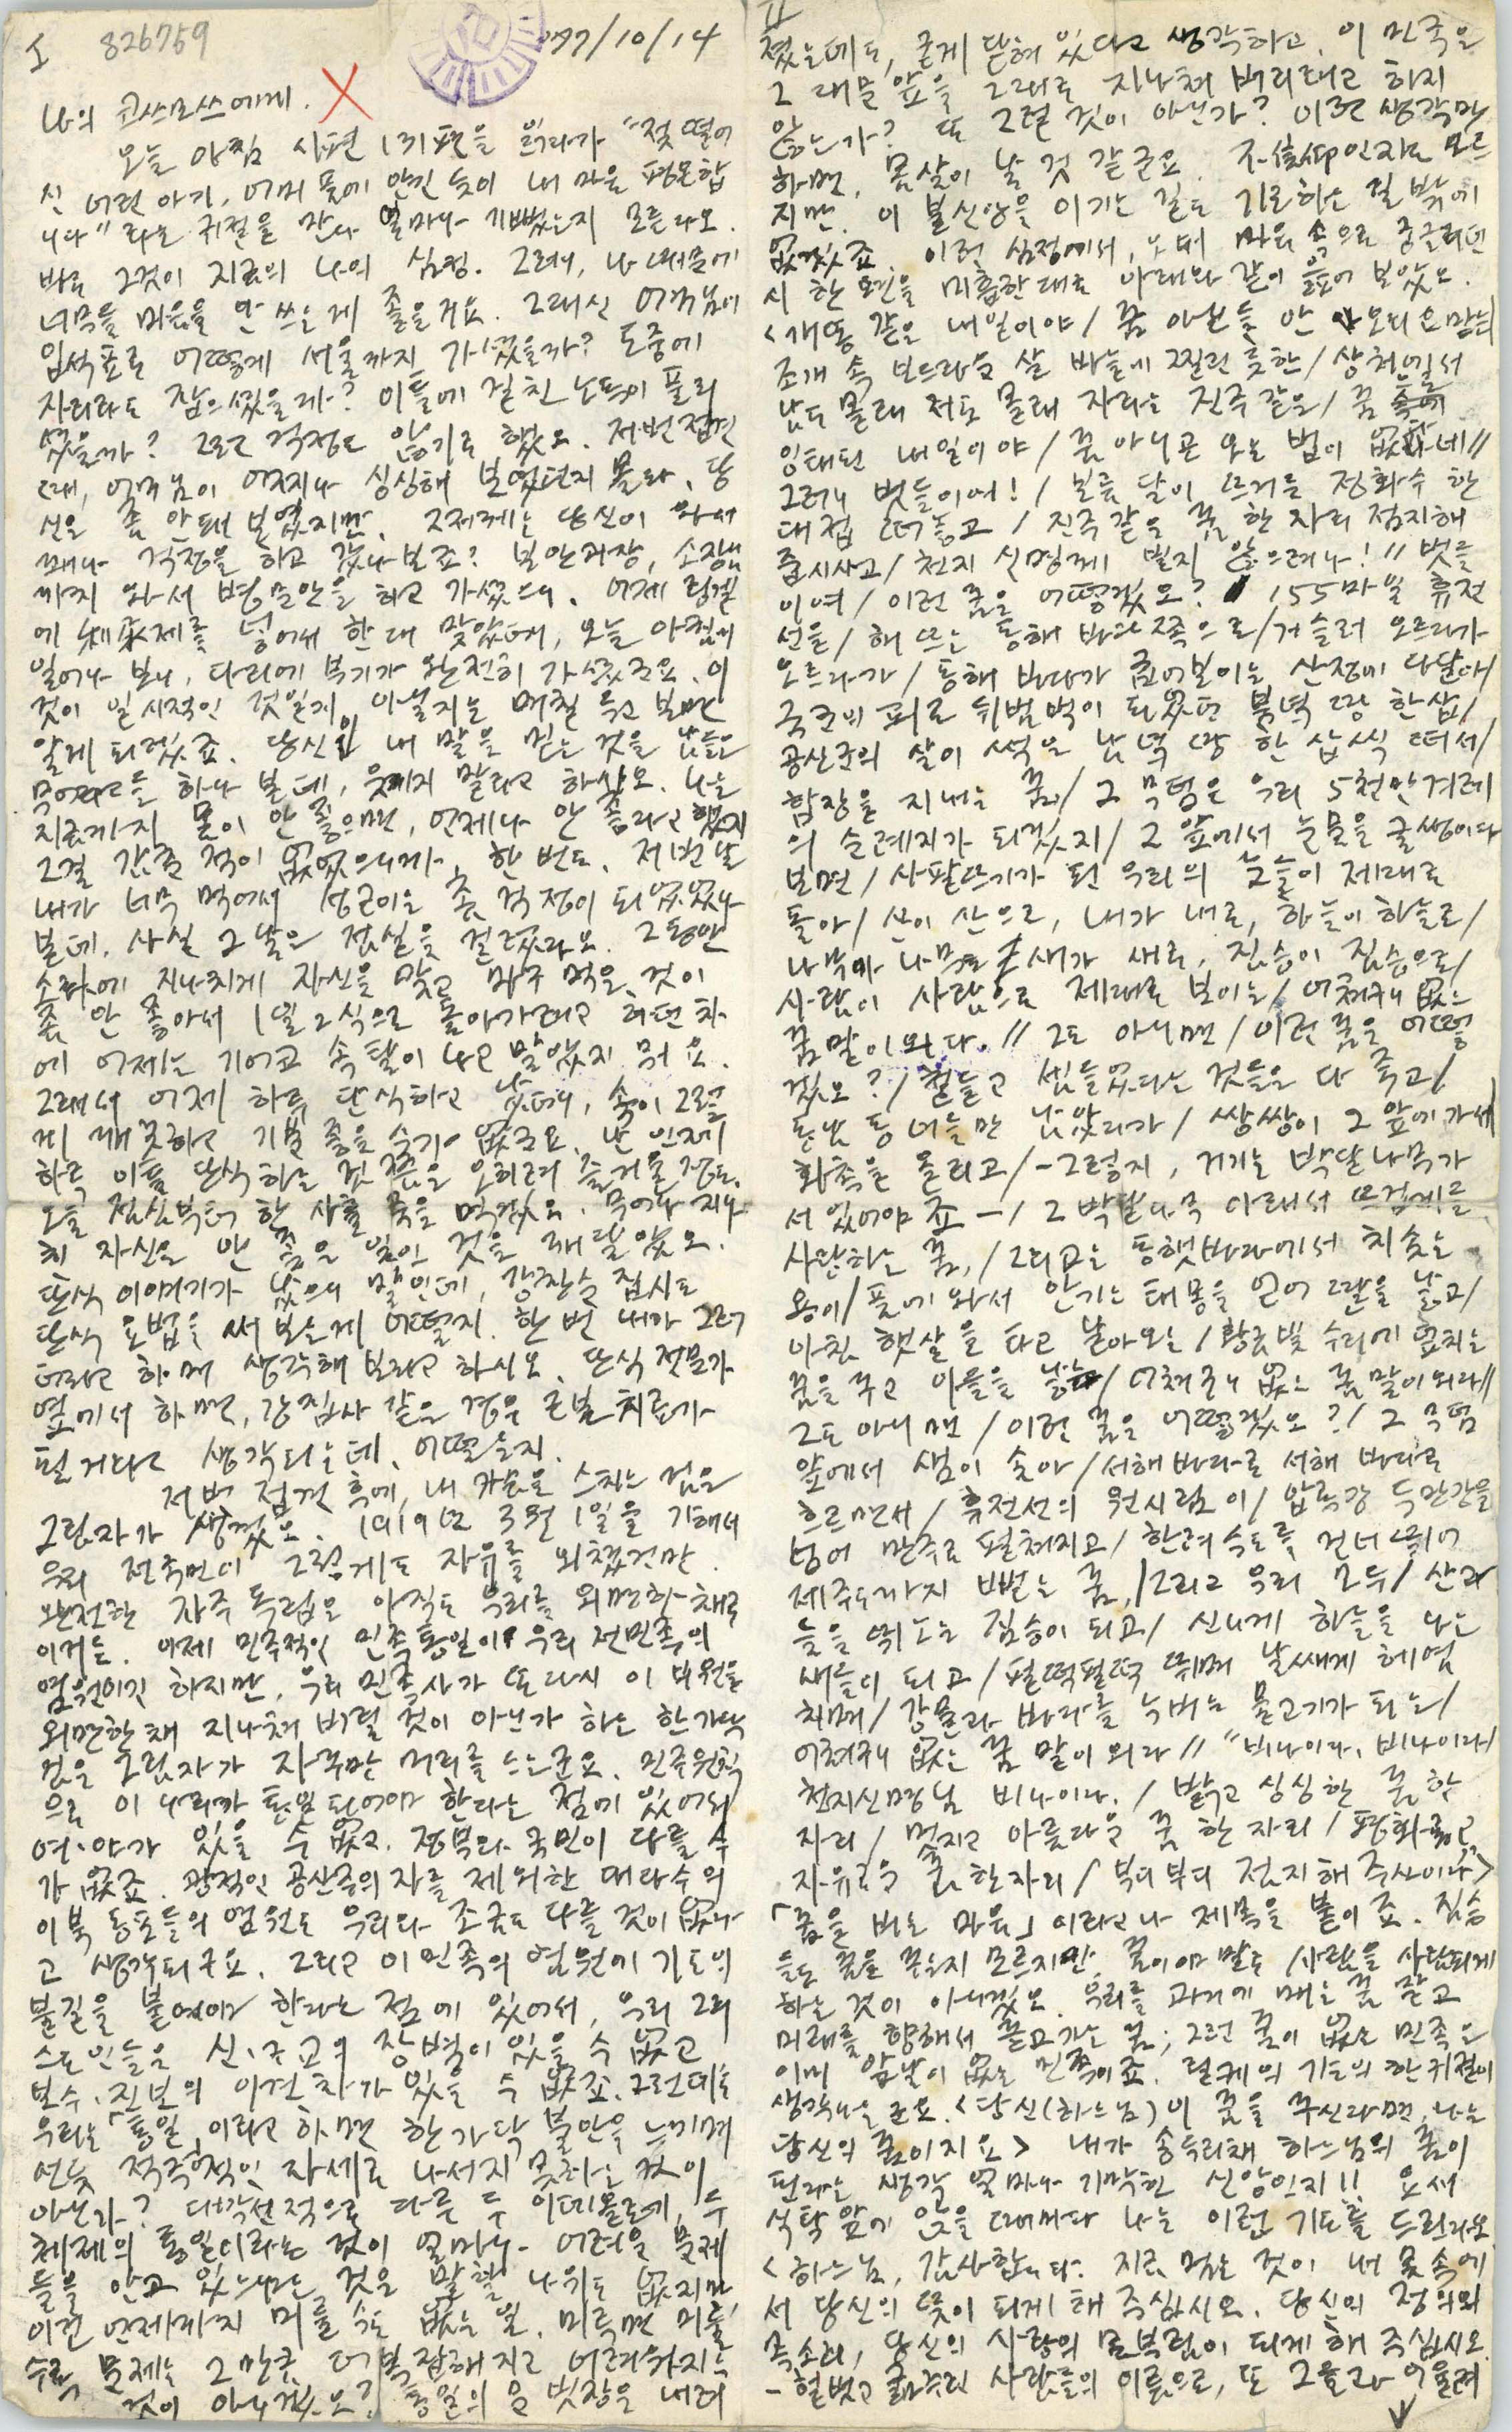 I 826759 1977/10/14
나의 고쓰모쓰에게.
오늘 아침 시편 131편을 읽다가 "젖 떨어
진 어린 아기, 어미 품에 안긴 듯이 내 마음 평온합
니다"라는 귀절을 만나 얼마나 기뻤는지 모른다오.
바로 그것이 지금의 나의 심정. 그러니, 나 때문에
너무들 마음을 안 쓰는 게 좋을거요. 그대신 어머님이
입석표로 어떻게 서울까지 가셨을까? 도중에
자리라도 잡으셨을까? 이틀에 걸친 노독이 풀리
셨을까? 그런 걱정도 않기로 했오. 저번 접견
때, 어머님이 어찌나 싱싱해 보였던지 몰라. 당
신은 좀 안돼 보였지만. 그저께는 당신이 와서
꽤나 걱정을 하고 갔나보죠? 보안과장, 소장님
까지 와서 병문안을 하고 가셨으니. 어제 링겔
에 제를 넣어서 한 대 맞았더니, 오늘 아침에
일어나 보니, 다리에 부기가 완전히 가셨군요. 이
것이 일시적인 것일지 아닐지는 며칠 두고 보면
알게 되겠죠. 당신이 내 말을 믿는 것을 남들은
뭐라고들 하나 본데, 웃기지 말라고 하시오. 나는
지금까지 몸이 안 좋으면, 언제나 안 좋다고 했지
그걸 감춘 적이 없었으니까, 한 번도. 저번날
내가 너무 먹어서 성근이는 좀 걱정이 되었었나
본데. 사실 그 날은 점심을 걸렀다오. 그동안
소화에 지나치게 자신을 갖고 마구 먹은 것이
좀 안 좋아서 1일 2식으로 돌아가려고 하던 차
에 어제는 기어코 속탈이 나고 말았지 뭐요.
그래서 어제 하루 단식하고 났더니, 속이 그렇
게 깨끗하고 기분 좋을 수가 없군요. 난 인제
하루 이틀 단식하는 것 쯤은 오히려 즐거울 정도.
오늘 점심부터 한 사흘 죽을 먹겠오. 무어나 지나
치 자신은 안 좋은 일인 것을 깨달았오.
단식 이야기가 났으니 말인데, 강 집사도
단식 요법을 써 보는게 어떨지. 한 번 내가 그러
더라고 하며 생각해 보라고 하시오. 단식 전문가
옆에서 하면, 강 집사 같은 경우 근본 치료가
될거라고 생각되는데, 어떨는지.
저번 접견 후에, 내 가슴을 스치는 검은
그림자가 생겼오. 1919년 3월 1일을 기해서
우리 전국민이 그렇게도 자유를 외쳤건만.
완전한 자주 독립은 아직도 우리를 외면한 채로
이거든. 이제 민주적인 민족통일이 우리 전민족의
염원이긴 하지만, 우리 민족사가 또다시 이 바원을
외면한 채 지나쳐 버릴 것이 아닌가 하는 한가닥
검은 그림자가 자꾸만 머리를 드는군요. 민주원칙
으로 이 나라가 통일 되어야 한다는 점에 있어서
여·야가 있을 수 없고. 정부와 국민이 다를 수
가 없죠. 광적인 공산주의자를 제외한 대다수의
이북 동포들의 염원도 우리와 조금도 다를 것이 없다
고 생각되구요. 그리고 이 민족의 염원에 기도의
불길을 붙여야 한다는 점에 있어서, 우리 그리
스도인들은 신·구교의 장벽이 있을 수 없고
보수·진보의 이견차가 있을 수 없죠. 그런데도
우리는 「통일」이라고 하면 한가닥 불안을 느끼며
선뜻 적극적인 자세로 나서지 못하는 것이
아닌가? 대각선적으로 다른 두 이데올로기, 두
체제의 통일이라는 것이 얼마나 어려운 문제
들을 안고 있느냐는 것은 말할 나위도 없지만
이건 언제까지 미룰 수도 없는 일. 미루면 미룰
수록 문제는 그만큼 더 복잡해지고 어려워지는
것이 아니겠오? 통일의 문 빗장은 내려
II
졌는데도, 굳게 닫혀 있다고 생각하고, 이 민족은
그 대문 앞을 그대로 지나쳐 버리려고 하지
않는가? 또 그럴 것이 아닌가? 이런 생각만
하면, 몸살이 날 것 같군요. 不信仰인지도 모르
지만. 이 불신앙을 이기는 길도 기도하는 길 밖에
없겠죠. 이런 심정에서, 노상 마음 속으로 중글리던
시 한 편을 미흡한대로 아래와 같이 읊어 보았오.
<개똥 같은 내일이야/꿈 아닌들 안 오리요마는/
조개 속 보드라운 살 바늘에 찔린 듯한/상처에서
남도 몰래 저도 몰래 자라는 진주같은/꿈으로
잉태된 내일이야/꿈 아니곤 오는 법이 없다네//
그러니 벗들이여!/보름달이 뜨거든 정화수 한
대접 떠놓고/진주같은 꿈 한 자리 점지해
줍시사고/천지 신명께 빌지 않으려나!//벗들
이여/이런 꿈은 어떻겠오? 155마일 휴전
선을/해 뜨는 동해 바다 쪽으로/거슬러 오르다가
오르다가/동해 바다가 굽어보이는 산정에 다달아/
국군의 피로 뒤범벅이 되었던 북녘 땅 한 삽/
공산군의 살이 썩은 남녘 땅 한 삽씩 떠서/
합장을 지내는 꿈,/그 무덤은 우리 5천만 겨레
의 순례지가 되겠지/그 앞에서 눈물을 글썽이다
보면/사팔뜨기가 된 우리의 눈들이 제대로
돌아/산이 산으로, 내가 내로, 하늘이 하늘로/
나무가 나무로 새가 새로, 짐승이 짐승으로/
사람이 사람으로 제대로 보이는/어처구니 없는
꿈 말이외다.//그도 아니면/이런 꿈은 어떻
겠오?/철들고 씨들었다는 것들은 다 죽고/
동남 동녀들만 남았다가/쌍쌍이 그 앞에 가서/
화촉을 올리고/-그렇지, 거기는 박달나무가
서 있어야죠-/그 박달나무 아래서 뜨겁게들
사랑하는 꿈,/그리고는 동햇바다에서 치솟는
용이/품에 와서 안기는 태몽을 얻어 딸을 낳고/
아침 햇살을 타고 날아오는/황금빛 수리에 덮치는
꿈을 꾸고 아들을 낳는/어처구니 없는 꿈 말이외다//
그도 아니면/이런 꿈은 어떻겠오?/그 무덤
앞에서 샘이 솟아/서해바다로 서해 바다로
흐르면서/휴전선의 원시림이/압록강 두만강을
넘어 만주로 펼쳐지고/한려수도를 건너뛰어
제주도까지 뻗는 꿈,/그리고 우리 모두/산과
들을 뛰노는 짐승이 되고/신나게 하늘을 나는
새들이 되고/펄떡펄떡 뛰며 날쌔게 헤엄
치며/강물과 바다를 누비는 물고기가 되는/
어처구니 없는 꿈 말이외다//"비나이다, 비나이다/
천지신명님 비나이다./밝고 싱싱한 꿈 한
자리/멋지고 아름다운 꿈 한 자리/평화롭고
자유로운 꿈 한 자리/부디부디 점지해 주사이다">
「꿈을 비는 마음」이라고나 제목을 붙이죠. 짐승
들도 꿈을 꾸는지 모르지만, 꿈이야말로 사람을 사람되게
하는 것이 아니겠오. 우리를 과거에 매는 꿈 말고
미래를 향해서 끌고 가는 꿈; 그런 꿈이 없는 민족은
이미 앞날이 없는 민족이죠. 릴케의 기도의 한 귀절이
생각나는군요. <당신(하느님)이 꿈을 꾸신다면, 나는
당신의 꿈이지요> 내가 송두리채 하느님의 꿈이
된다는 생각 얼마나 기막힌 신앙인지!! 요새
식탁 앞에 앉을 때마다 나는 이런 기도를 드린다오
<하느님, 감사합니다. 지금 먹는 것이 내 몸속에
서 당신의 뜻이 되게 해 주십시오. 당신의 정의의
목소리, 당신의 사랑의 몸부림이 되게 해 주십시오.
- 헐벗고 굶주린 사람들의 이름으로, 또 그들과 어울려
↓